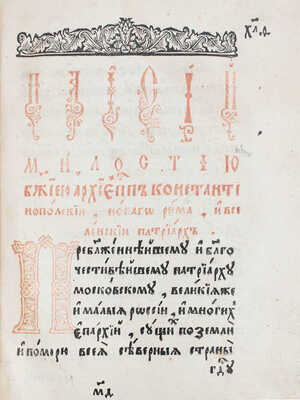 ПАІСІИ
МИЛОСТЇЮ
БЖЇЕЮ АРХЇЕПП҃Ъ КОНСТАНТЕ
НОПОЛСКЇИ, НОВАГѠ РИМА, И ВСЕ
ЛЕНСКЇИ ПАТРЇАРХЪ
Пребл҃женнѣйшему и бл҃го
честивѣйшему патрїарху
московскому, великїѧ же
и малыѧ рѡссїи, и многихъ
епархїи, сущихъ по земли
и поморю всеѧ сѣверныѧ страны
гд҇ꙋ